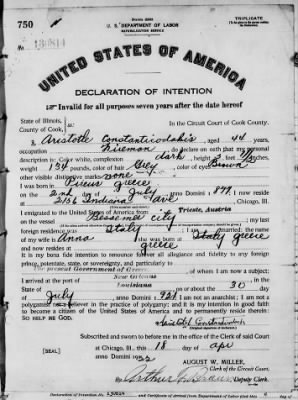 750
TRIPLICATE
U. S. DEPARTMENT OF LABOR
NATURALIZATION SERVICE
No.
UNITED STATES OF AMERICA
DECLARATION OF INTENTION
Invalid for all purposes seven years after the date hereof
State of Illinois,
County of Cook,
In the Circuit Court of Cook County.
I, Aristotle Constanticodakis, aged 44 years,
occupation Fireman, do declare on oath that my personal
description is: Color white, complexion dark, height feet inches,
weight 134 pounds, color of hair Grey, color of eyes Brown
other visible distinctive marks none
I was born in Greece
on the 2nd day of July, anno Domini 1; I now reside
at 2156 Indiana Ave, Chicago, Ill.
I emigrated to the United States of America from Trieste, Austria
on the vessel city; my last
foreign residence was Italy; I am married; the name of my
wife is Anna; she was born at Greece
and now resides at
It is my bona fide intention to renounce forever all allegiance and fidelity to any foreign
prince, potentate, state, or sovereignty, and particularly to
The present Government of Greece, of whom I am now a subject;
I arrived at the port of New Orleans, in the
State of Louisiana, on or about the 30 day
of July, anno Domini 1; I am not an anarchist; I am not a
polygamist nor a believer in the practice of polygamy; and it is my intention in good faith
to become a citizen of the United States of America and to permanently reside therein:
SO HELP ME GOD.
Subscribed and sworn to before me in the office of the Clerk of said Court
at Chicago, Ill., this 18 day of
anno Domini 1922
[SEAL]
AUGUST W. MILLER,
Clerk of the Circuit Court.
By Arthur, Deputy Clerk.
Declaration of Intention No.
and Certificate of Arrival from Department of Labor filed this